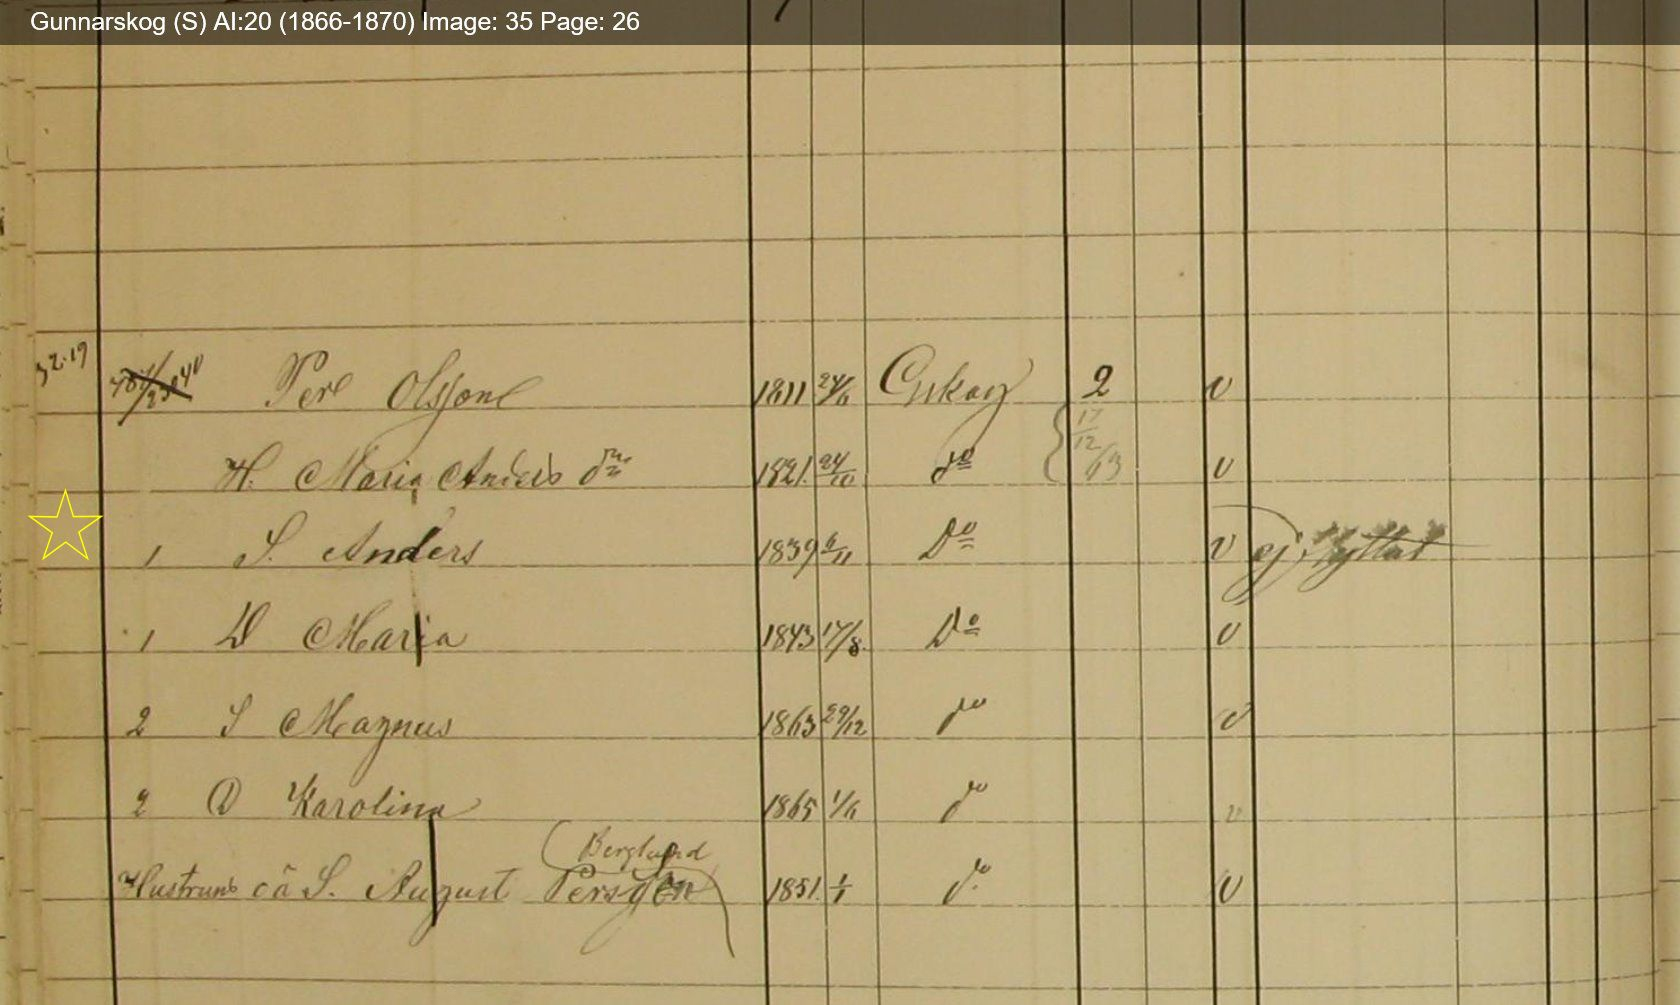 Gunnarskog (S) AI:20 (1866-1870) Image: 35 Page: 26
32.19 Per Olsson 1811 24/6 Gskog 2 v
17/12 63
H. Maria Anders dr 1821. 24/10 do v
1 S. Anders 1839 6/11 Do v ej flyttat
1 D Maria 1843 17/8. Do v
2 S Magnus 1863 29/12 do v
2 D Karolina 1865 1/6 do v
Berglund
Hustruns oä S. August Persson 1851. 1/1 do v